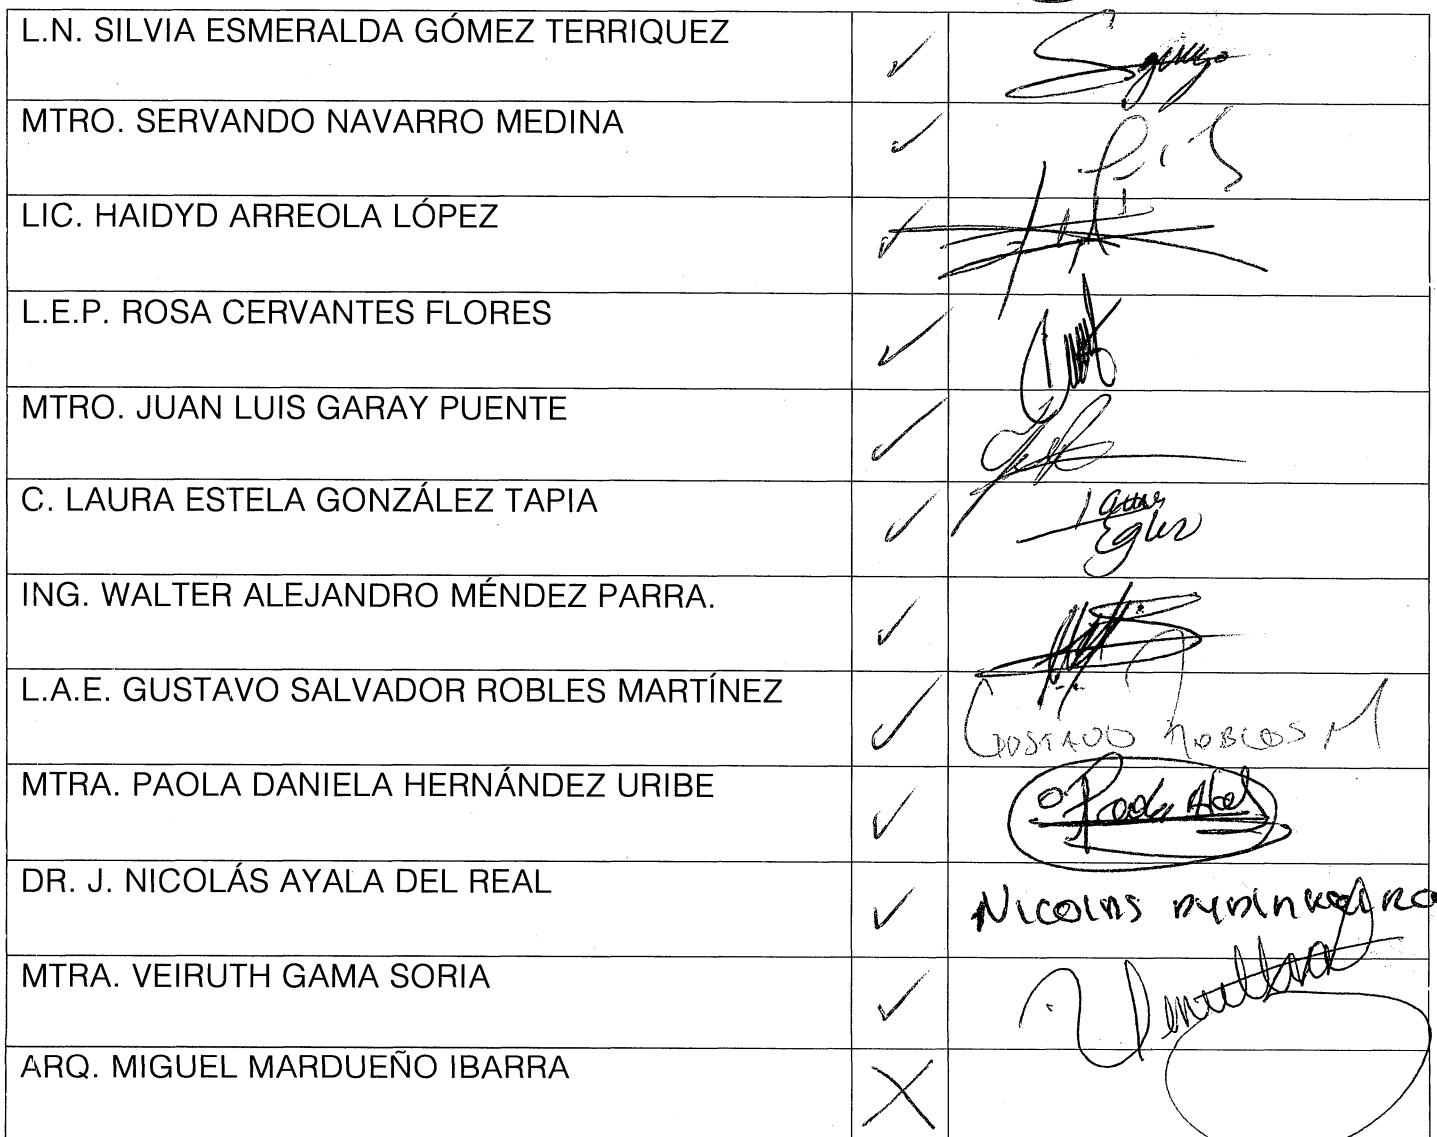 L.N. SILVIA ESMERALDA GÓMEZ TERRIQUEZ
MTRO. SERVANDO NAVARRO MEDINA
LIC. HAIDYD ARREOLA LÓPEZ
L.E.P. ROSA CERVANTES FLORES
MTRO. JUAN LUIS GARAY PUENTE
C. LAURA ESTELA GONZÁLEZ TAPIA
ING. WALTER ALEJANDRO MÉNDEZ PARRA.
L.A.E. GUSTAVO SALVADOR ROBLES MARTÍNEZ
GUSTAVO ROBLES M
MTRA. PAOLA DANIELA HERNÁNDEZ URIBE
DR. J. NICOLÁS AYALA DEL REAL
NICOLAS
MTRA. VEIRUTH GAMA SORIA
ARQ. MIGUEL MARDUEÑO IBARRA